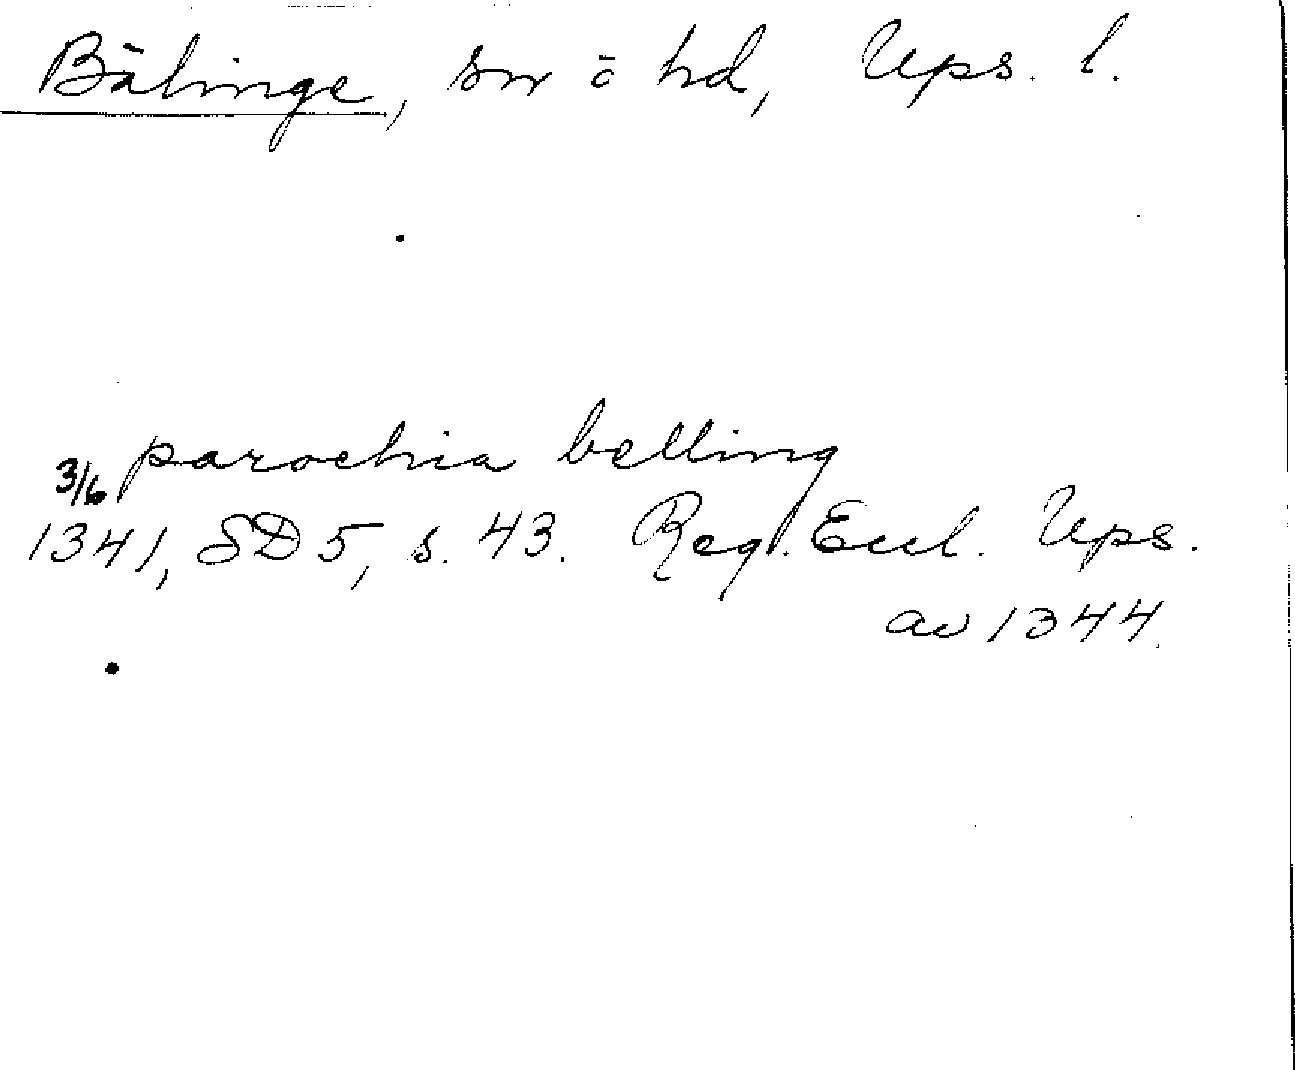 Bälinge, sn o hd, Ups. l.
parochia belling
3/6
1341, SD 5, s. 43. Reg. Eccl. Ups.
av 1344.